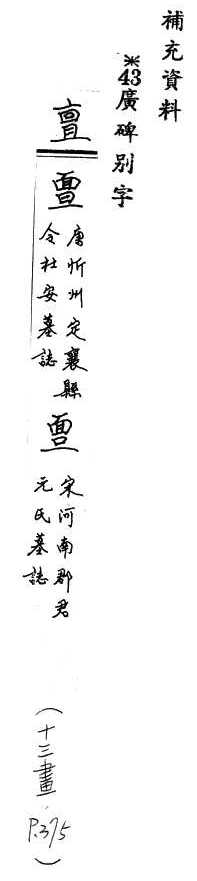 補充資料
※43廣碑別字
亶
唐忻州定襄縣
令杜安墓誌
宋河南郡君
元氏墓誌
(十三畫,P.375)